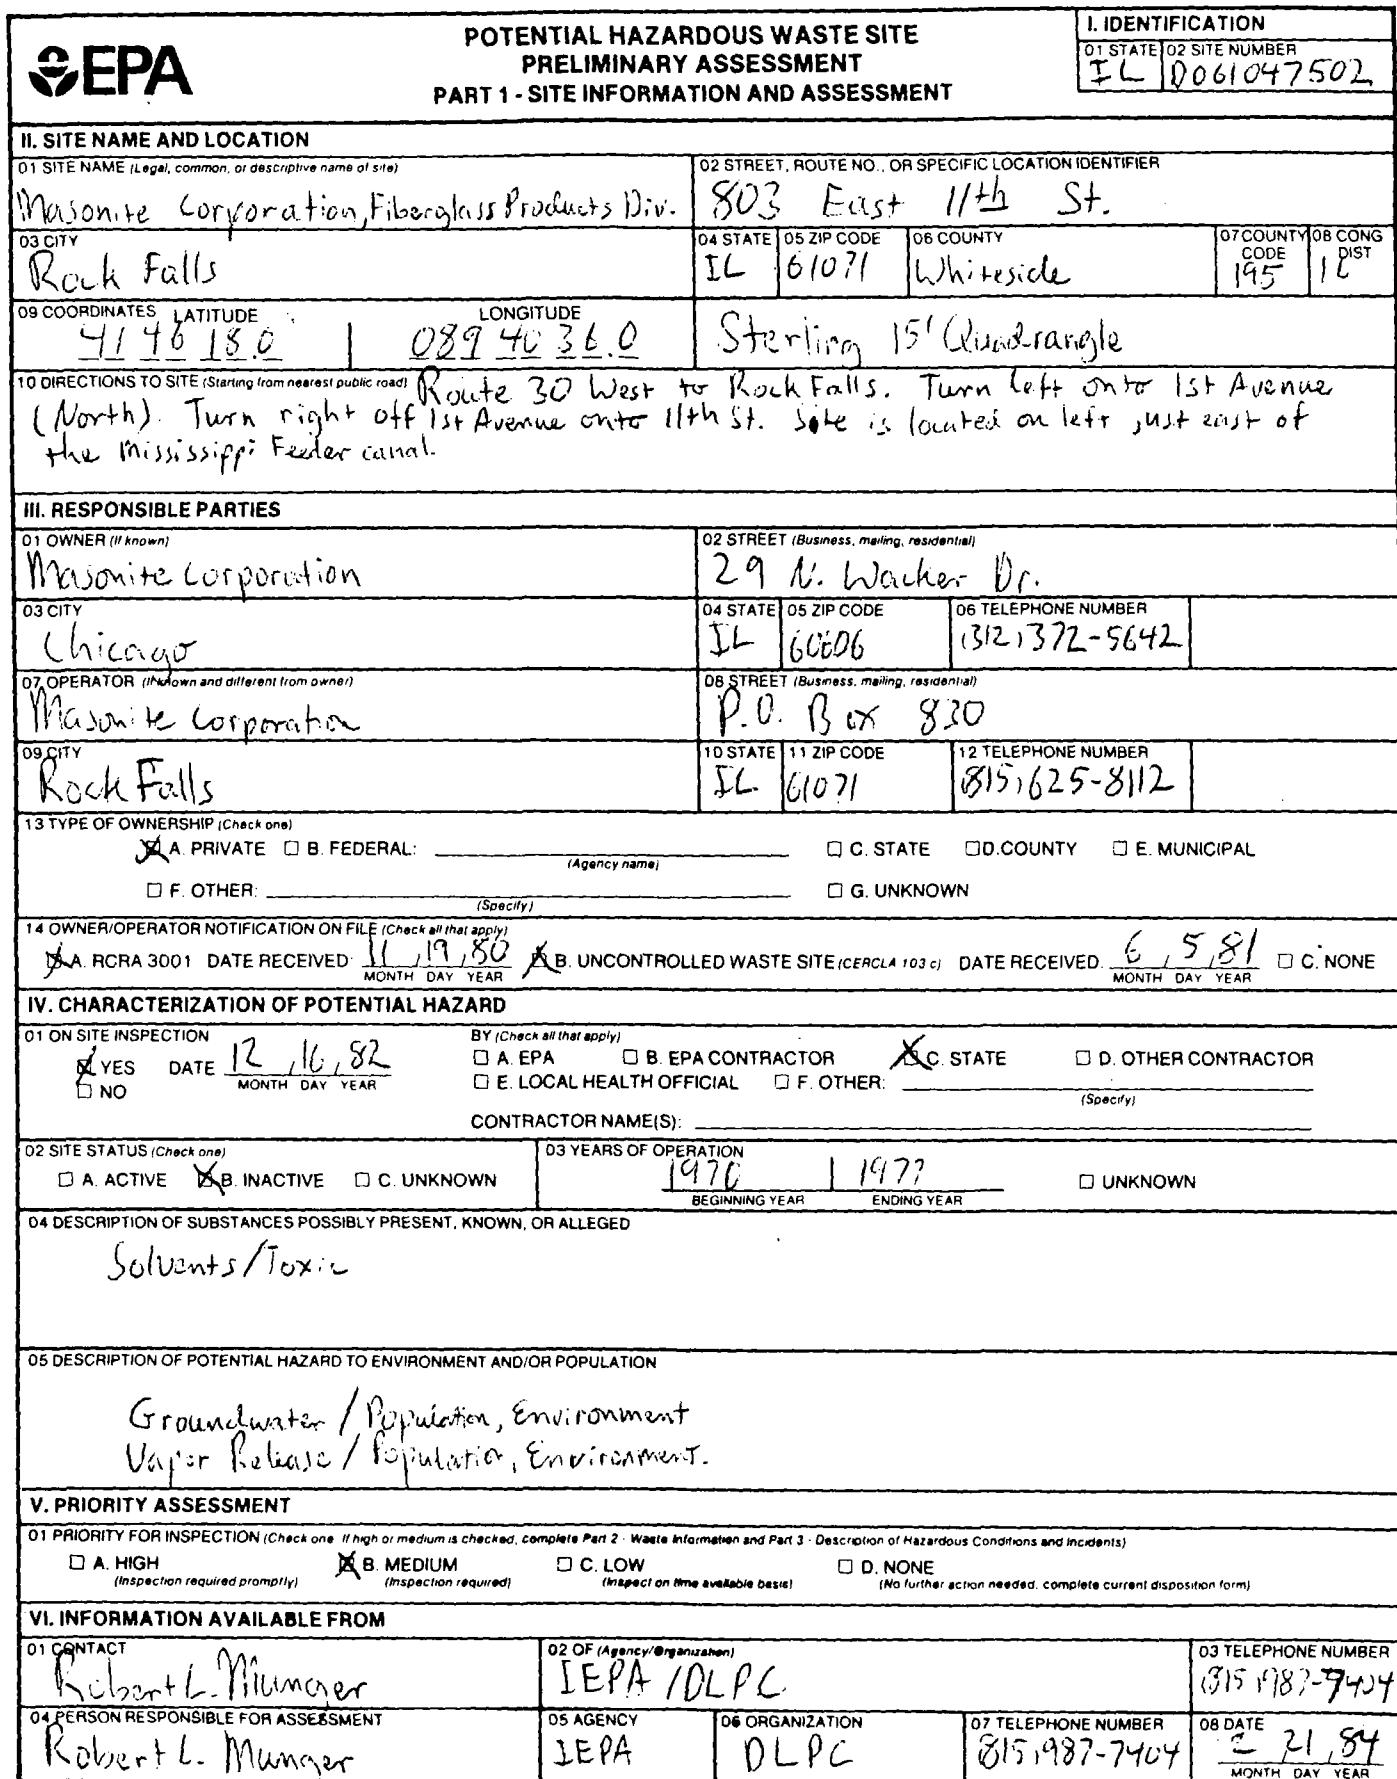 EPA
POTENTIAL HAZARDOUS WASTE SITE
PRELIMINARY ASSESSMENT
PART 1 - SITE INFORMATION AND ASSESSMENT
I. IDENTIFICATION
01 STATE 02 SITE NUMBER
IL D061047502
II. SITE NAME AND LOCATION
01 SITE NAME (Legal, common, or descriptive name of site)
Masonite Corporation, Fiberglass Products Div.
02 STREET, ROUTE NO., OR SPECIFIC LOCATION IDENTIFIER
803 East 11th St.
03 CITY
Rock Falls
04 STATE 05 ZIP CODE 06 COUNTY 07 COUNTY CODE 08 CONG DIST
IL 61071 Whiteside 195
09 COORDINATES LATITUDE LONGITUDE
41 46 18.0 089 40 36.0 Sterling 15' Quadrangle
10 DIRECTIONS TO SITE (Starting from nearest public road) Route 30 West to Rock Falls. Turn left onto 1st Avenue
(North). Turn right off 1st Avenue onto 11th St. Site is located on left just east of
the Mississippi Feeder canal.
III. RESPONSIBLE PARTIES
01 OWNER (If known)
Masonite Corporation
02 STREET (Business, mailing, residential)
29 N. Wacker Dr.
03 CITY
Chicago
04 STATE 05 ZIP CODE 06 TELEPHONE NUMBER
IL 60606 (312) 372-5642
07 OPERATOR (If known and different from owner)
Masonite Corporation
08 STREET (Business, mailing, residential)
P.O. Box 830
09 CITY
Rock Falls
10 STATE 11 ZIP CODE 12 TELEPHONE NUMBER
IL 61071 (815) 625-8112
13 TYPE OF OWNERSHIP (Check one)
A. PRIVATE B. FEDERAL: (Agency name) C. STATE D. COUNTY E. MUNICIPAL
F. OTHER: (Specify) G. UNKNOWN
14 OWNER/OPERATOR NOTIFICATION ON FILE (Check all that apply)
A. RCRA 3001 DATE RECEIVED: 11, 19, 80 B. UNCONTROLLED WASTE SITE (CERCLA 103 c) DATE RECEIVED: 6, 5, 81 C. NONE
MONTH DAY YEAR MONTH DAY YEAR
IV. CHARACTERIZATION OF POTENTIAL HAZARD
01 ON SITE INSPECTION
YES DATE 12, 16, 82
NO MONTH DAY YEAR
BY (Check all that apply)
A. EPA B. EPA CONTRACTOR C. STATE D. OTHER CONTRACTOR
E. LOCAL HEALTH OFFICIAL F. OTHER:
(Specify)
CONTRACTOR NAME(S):
02 SITE STATUS (Check one)
A. ACTIVE B. INACTIVE C. UNKNOWN
03 YEARS OF OPERATION
1970 | 1977 UNKNOWN
BEGINNING YEAR ENDING YEAR
04 DESCRIPTION OF SUBSTANCES POSSIBLY PRESENT, KNOWN, OR ALLEGED
Solvents/Toxic
05 DESCRIPTION OF POTENTIAL HAZARD TO ENVIRONMENT AND/OR POPULATION
Groundwater / Population, Environment
Vapor Release / Population, Environment.
V. PRIORITY ASSESSMENT
01 PRIORITY FOR INSPECTION (Check one. If high or medium is checked, complete Part 2 - Waste Information and Part 3 - Description of Hazardous Conditions and Incidents)
A. HIGH B. MEDIUM C. LOW D. NONE
(Inspection required promptly) (Inspection required) (Inspect on time available basis) (No further action needed, complete current disposition form)
VI. INFORMATION AVAILABLE FROM
01 CONTACT
Robert L. Munger
02 OF (Agency/Organization)
IEPA / DLPC
03 TELEPHONE NUMBER
(815) 987-7404
04 PERSON RESPONSIBLE FOR ASSESSMENT
Robert L. Munger
05 AGENCY
IEPA
06 ORGANIZATION
DLPC
07 TELEPHONE NUMBER
(815) 987-7404
08 DATE
21, 84
MONTH DAY YEAR